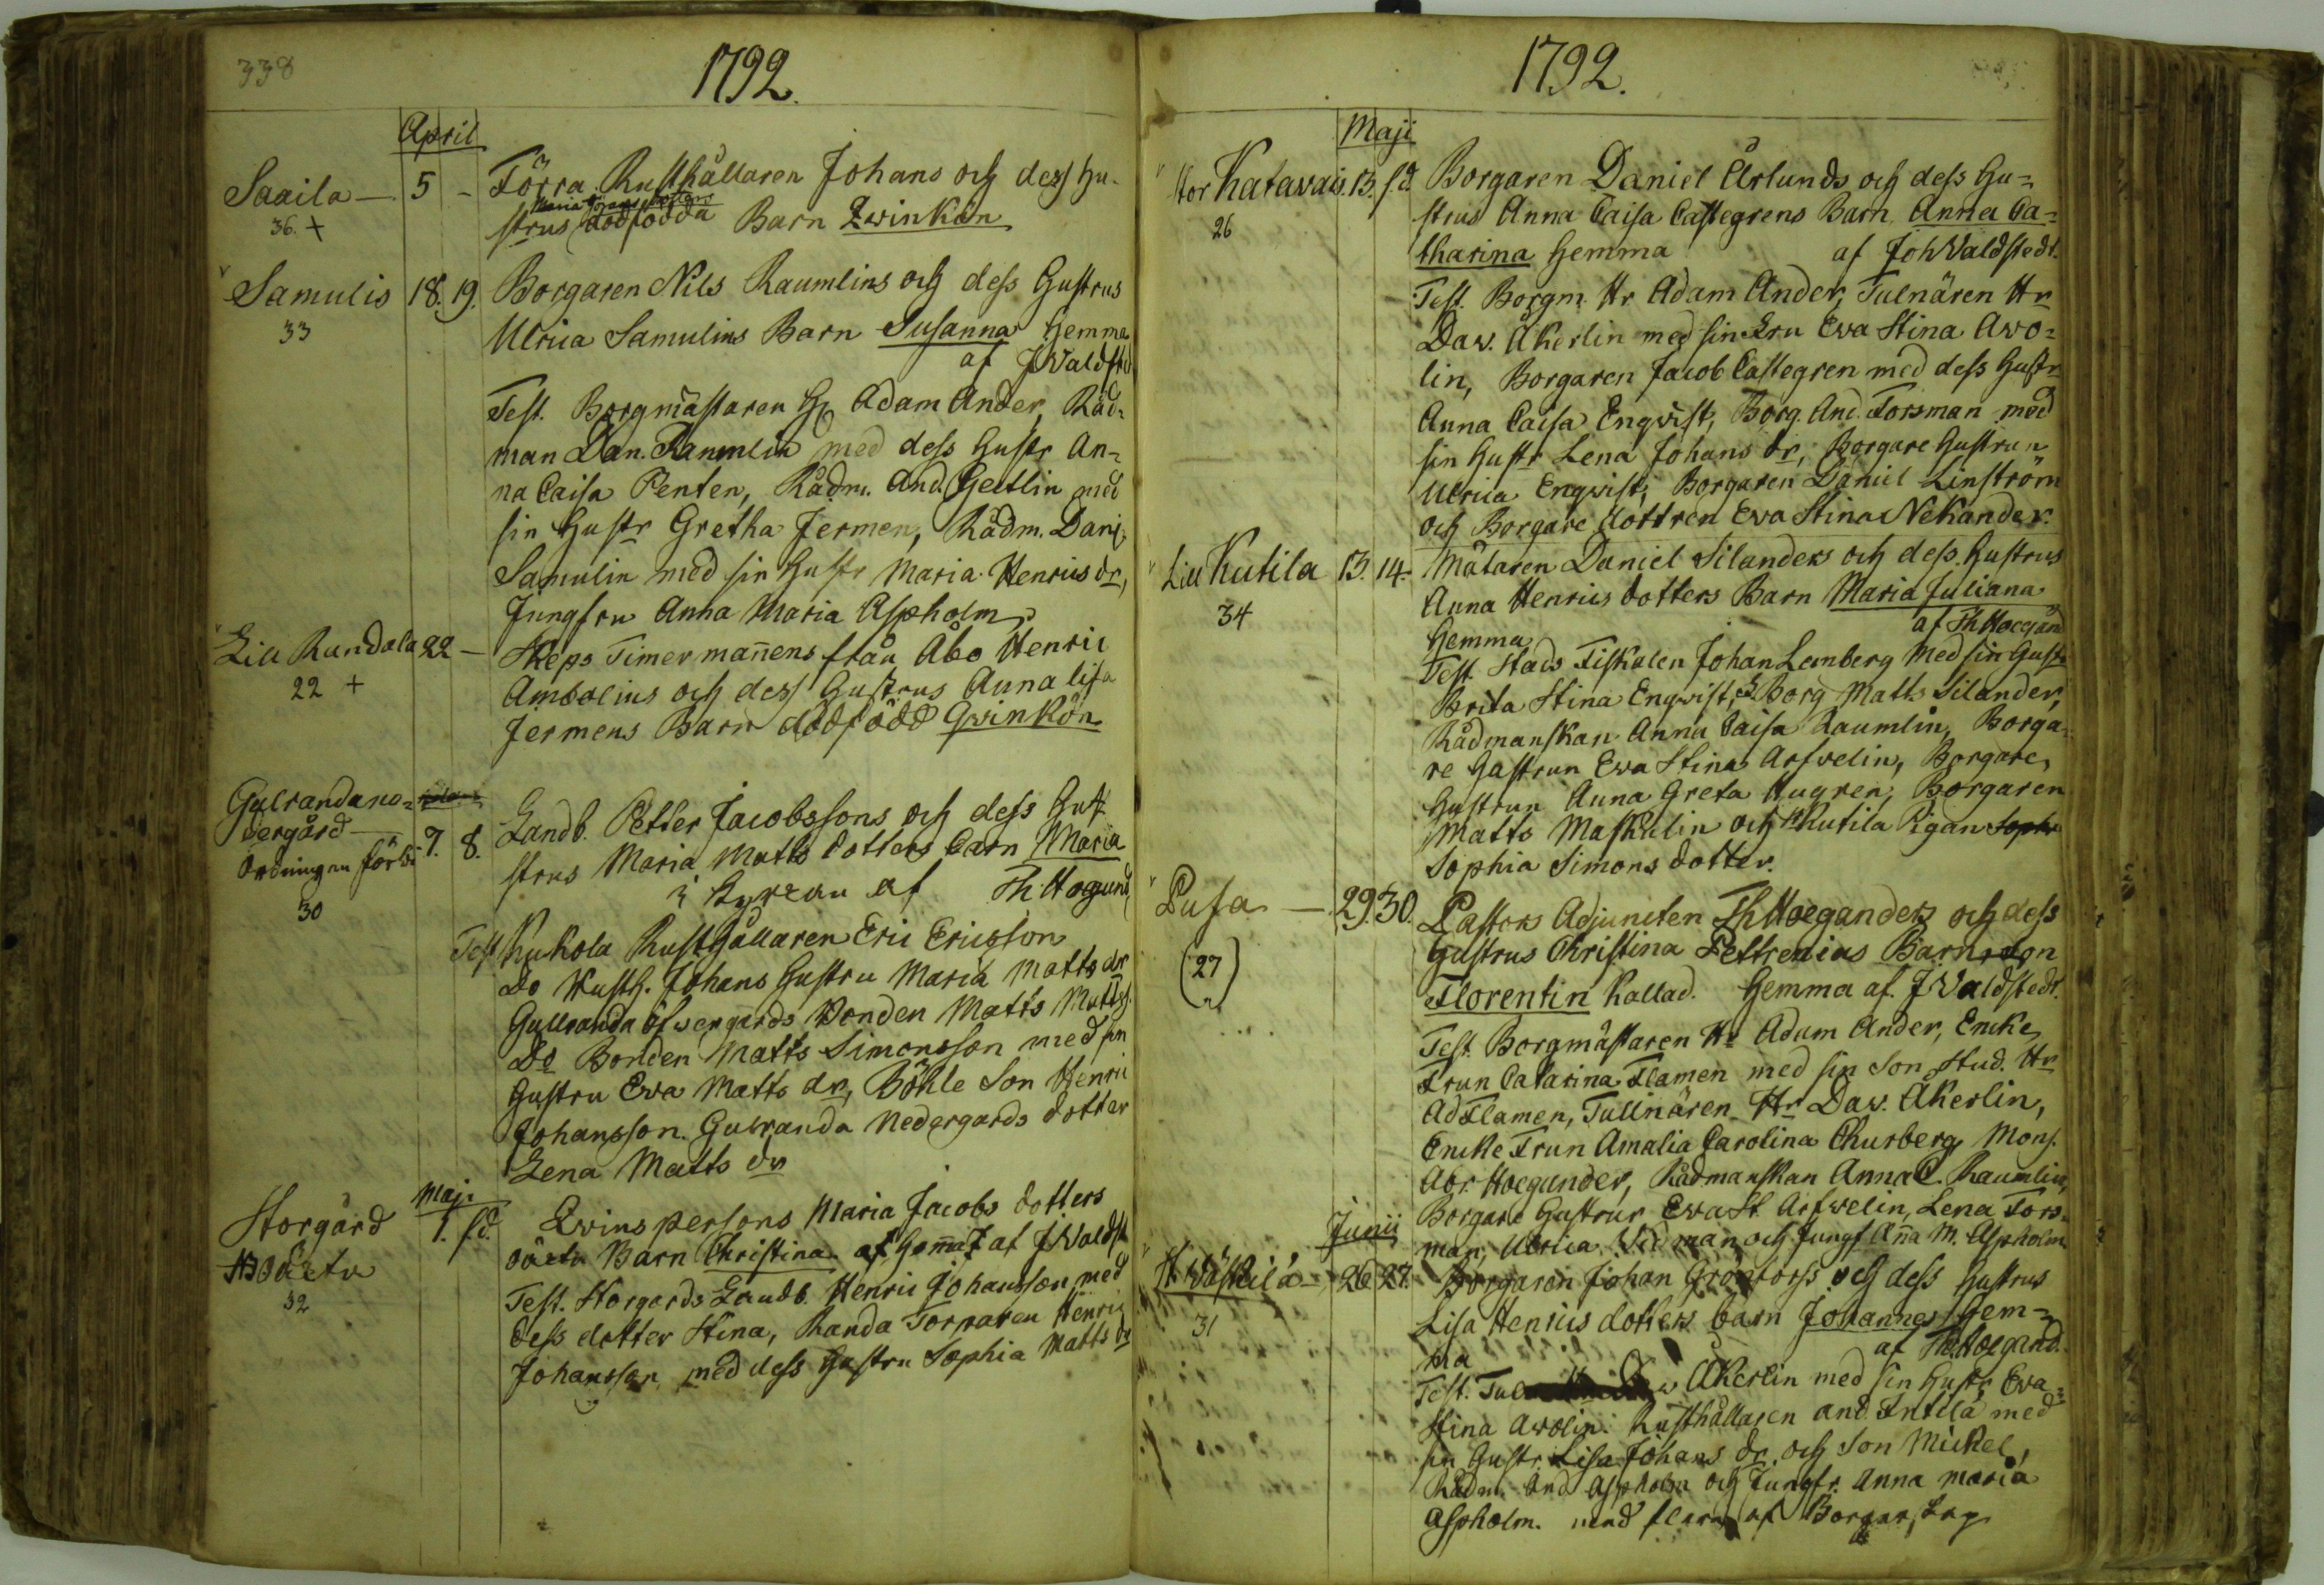 338
1792.
April
Saaila — 5 - Förra Rusthållaren Johans och dess Hu-
36. + strus dödfödda Barn Qwinkön
Samulis 18. 19. Borgaren Nils Raumlins och dess Hustrus
33 Ulrica Samulins Barn Susanna hemma
af J Waldst
Test. Borgmästaren H Adam Ander, Råd-
man Dan. Raumlin med dess Hustr An-
na Caisa Penten, Rådm. And. Geitlin med
sin Hustr Gretha Jermen, Rådm. Dani
Samulin med sin Hustr Maria Henrics dr,
Jungfru Anna Maria Aspholm
Lill Rundola 22 — Skeps Timermanens från Åbo Henric
22 + Ambolius och dess Hustrus Anna lisa
Jermens Barn dödfödd Qwinkön
Gulranda no=
dergård 7. 8. Landb. Petter Jacobssons och dess Hu-
Ordningen förbi strus Maria Matts dotters barn Maria
30 i Kyrcan af Th Hoegand
Test Kukola Rusthållaren Eric Ericsson
Do Rusth. Johans Hustru Maria Matts dr
Gullranda öfwergårds Bonden Matts Mattss.
Do Bonden Matts Simonsson med sin
Hustru Ewa Matts dr, Böhle Son Henric
Johansson. Gulranda Nedergårds dotter
Lena Matts dr
Maji
Storgård 1. s.d. Qwinspersons Maria Jacobs dotters
oäcta oäcta Barn Christina hemma af J Waldst
32 Test. Storgårds Landb. Henric Johansson med
dess dotter Stina, Randa Torparen Henric
Johansson med dess Hustru Sophia Matts dr
1792.
Maji
Stor Katavais. 13. s.d. Borgaren Daniel Arlunds och dess Hu=
26 strus Anna Caisa Castegrens Barn Anna Ca=
tharina hemma af Joh Waldstedt.
Test. Borgm. Hr Adam Ander, Tulnären Hr
Daw. Åkerlin med sin Fru Ewa Stina Awo=
lin, Borgaren Jacob Castegren med dess Hustr
Anna Caisa Engwist, Borg. And. Forsman med
sin Hustr Lena Johans dr, Borgare Hustrun
Ulrica Engwist, Borgaren Daniel Linström
och Borgare dottren Ewa Stina Nekander.
Lill Kutila 13. 14. Målaren Daniel Silanders och dess Hustrus
34 Anna Henrics dotters Barn Maria Juliana
hemma af Th Hoegand
Test. Stads Fiskalen Johan Lemberg med sin Hustr
Brita Stina Engwist, Borg Matts Silander,
Rådmanskan Anna Caisa Raumlin, Borga-
re Hustrun Ewa Stina Arfwelin, Borgare
Hustrun Anna Greta Hugren, Borgaren
Matts Maskulin och Kutila Pigan
Sophia Simons dotter.
Pusa — 29. 30. Pastors Adjuncten Th Hoeganders och dess
(27) Hustrus Christina Pettrenias Barn son
Florentin kallad. hemma af J Waldstedt.
Test. Borgmästaren Hr Adam Ander, Encke
Frun Catarina Flamen med sin Son Stud. Hr
Ad Flamen, Tullnären Hr Daw. Åkerlin,
Encke Frun Amalia Carolina Churberg Mons.
Abr. Hoegander, Rådmanskan Anna C. Raumlin,
Borgare Hustrur Ewa St. Arfwelin, Lena Fors-
man, Ulrica Widman och Jungf Anna M. Aspholm
Junii
26. 27. Borgaren Johan Gröntorss och dess Hustrus
31 Lisa Henrics dotters barn Johannes Hem=
ma af Th. Hoegand.
Test. Åkerlin med sin Hustr Ewa
Stina Awolin. Rusthållaren And. Inkilä med
sin Hustr. Lisa Johans dr. och Son Mickel,
Rådm. And Aspholm och Jungfr. Anna Maria
Aspholm. med flera af Borgar